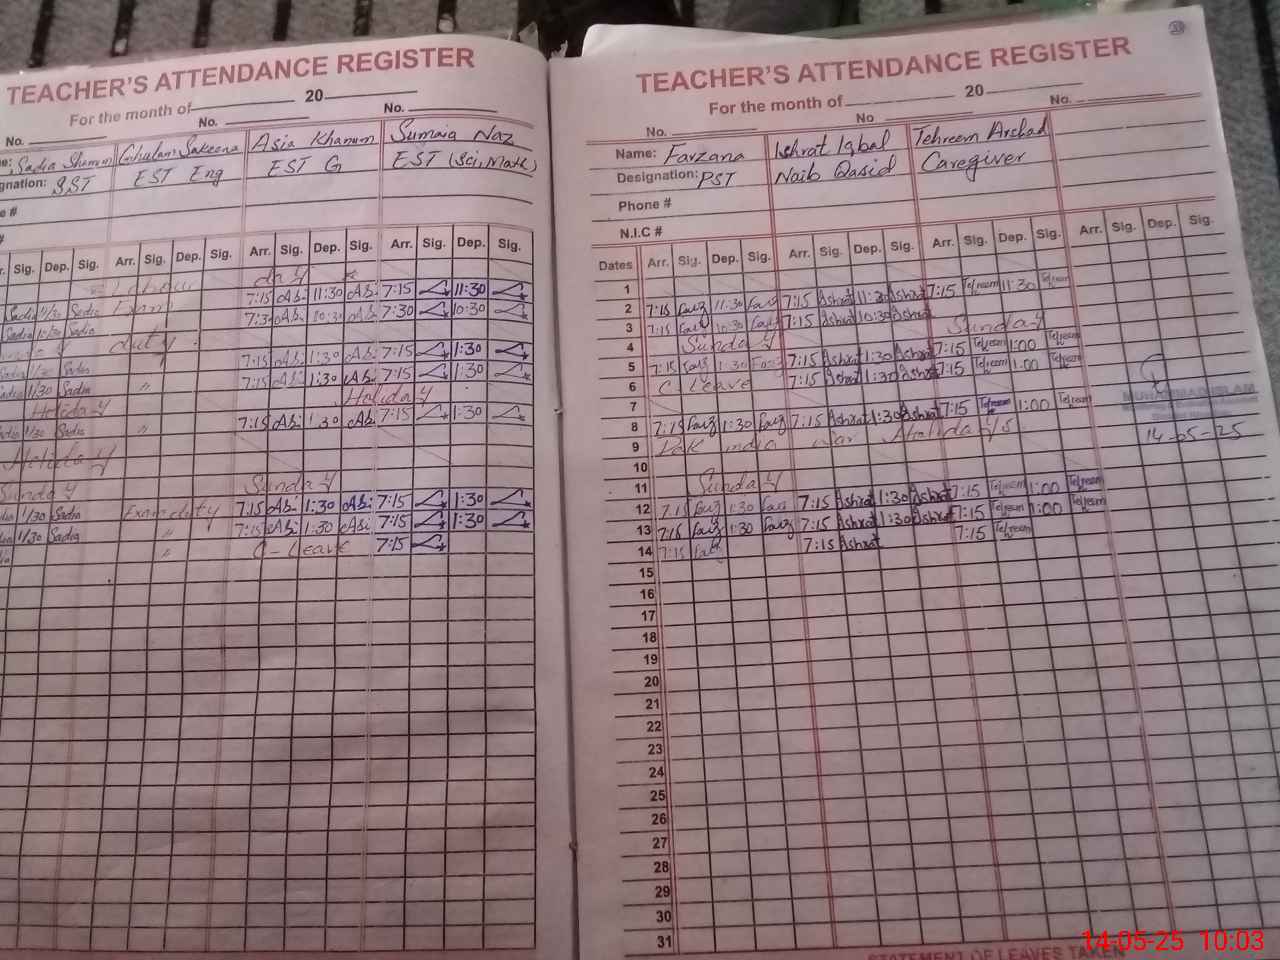 TEACHER'S ATTENDANCE REGISTER
For the month of 20
No. No. No.
Sadia Ghulam Sakeena Asia Khanum Sumaia Naz
gnation: SST EST Eng EST G EST (Sci, Math)
e #
Sig. Dep. Sig. Arr. Sig. Dep. Sig. Arr. Sig. Dep. Sig. Arr. Sig. Dep. Sig.
Labour day
Sadia 11:30 Sadia Exam 7:15 11:30 7:15 11:30
Sadia 10:30 Sadia 7:30 10:30 7:30 10:30
duty
1:30 Sadia 7:15 1:30 7:15 1:30
1:30 Sadia 〃 7:15 1:30 7:15 1:30
Holiday Holiday
1:30 Sadia 〃 7:15 1:30 7:15 1:30
Holiday
Sunday Sunday
1:30 Sadia Exam duty 7:15 1:30 7:15 1:30
1:30 Sadia 〃 7:15 1:30 7:15 1:30
〃 C-Leave 7:15
TEACHER'S ATTENDANCE REGISTER
For the month of 20
No. No No.
Name: Farzana Ishrat Iqbal Tehreem Arshad
Designation: PST Naib Qasid Caregiver
Phone #
N.I.C #
Dates Arr. Sig. Dep. Sig. Arr. Sig. Dep. Sig. Arr. Sig. Dep. Sig. Arr. Sig. Dep. Sig.
1
2 7:15 Farz 11:30 Farz 7:15 Ashrat 11:30 Ashrat 7:15 Tehreem 11:30 Tehreem
3 7:15 Farz 10:30 Farz 7:15 Ashrat 10:30 Ashrat
4 Sunday Sunday
5 7:15 Farz 1:30 Farz 7:15 Ashrat 1:30 Ashrat 7:15 Tehreem 1:00 Tehreem
6 C Leave 7:15 Ashrat 1:30 Ashrat 7:15 Tehreem 1:00 Tehreem
7
8 7:15 Farz 1:30 Farz 7:15 Ashrat 1:30 Ashrat 7:15 Tehreem 1:00 Tehreem
9 Pak india war Holidays
14-05-25
10
11 Sunday
12 7:15 Farz 1:30 Farz 7:15 Ashrat 1:30 Ashrat 7:15 Tehreem 1:00 Tehreem
13 7:15 Farz 1:30 Farz 7:15 Ashrat 1:30 Ashrat 7:15 Tehreem 1:00 Tehreem
14 7:15 Farz 7:15 Ashrat 7:15 Tehreem
15
16
17
18
19
20
21
22
23
24
25
26
27
28
29
30
31
STATEMENT OF LEAVES TAKEN
14-05-25 10:03